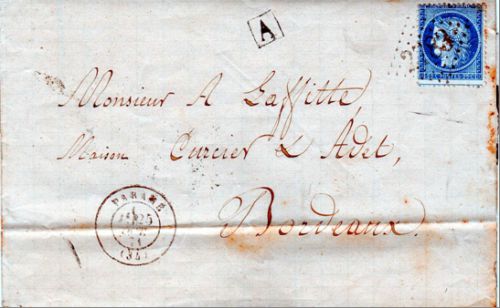 A
Monsieur A Laffitte,
Maison Curcier & Adet,
Bordeaux.
PARAMÉ
(34)